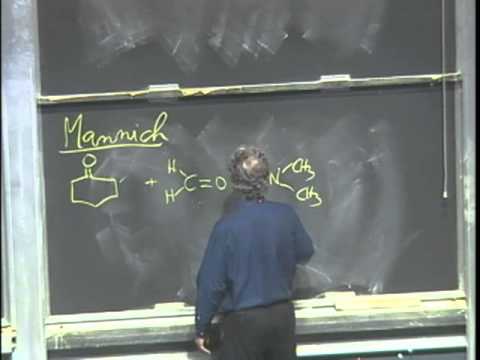 Mannich
O
H
+ C=O N CH3
H CH3